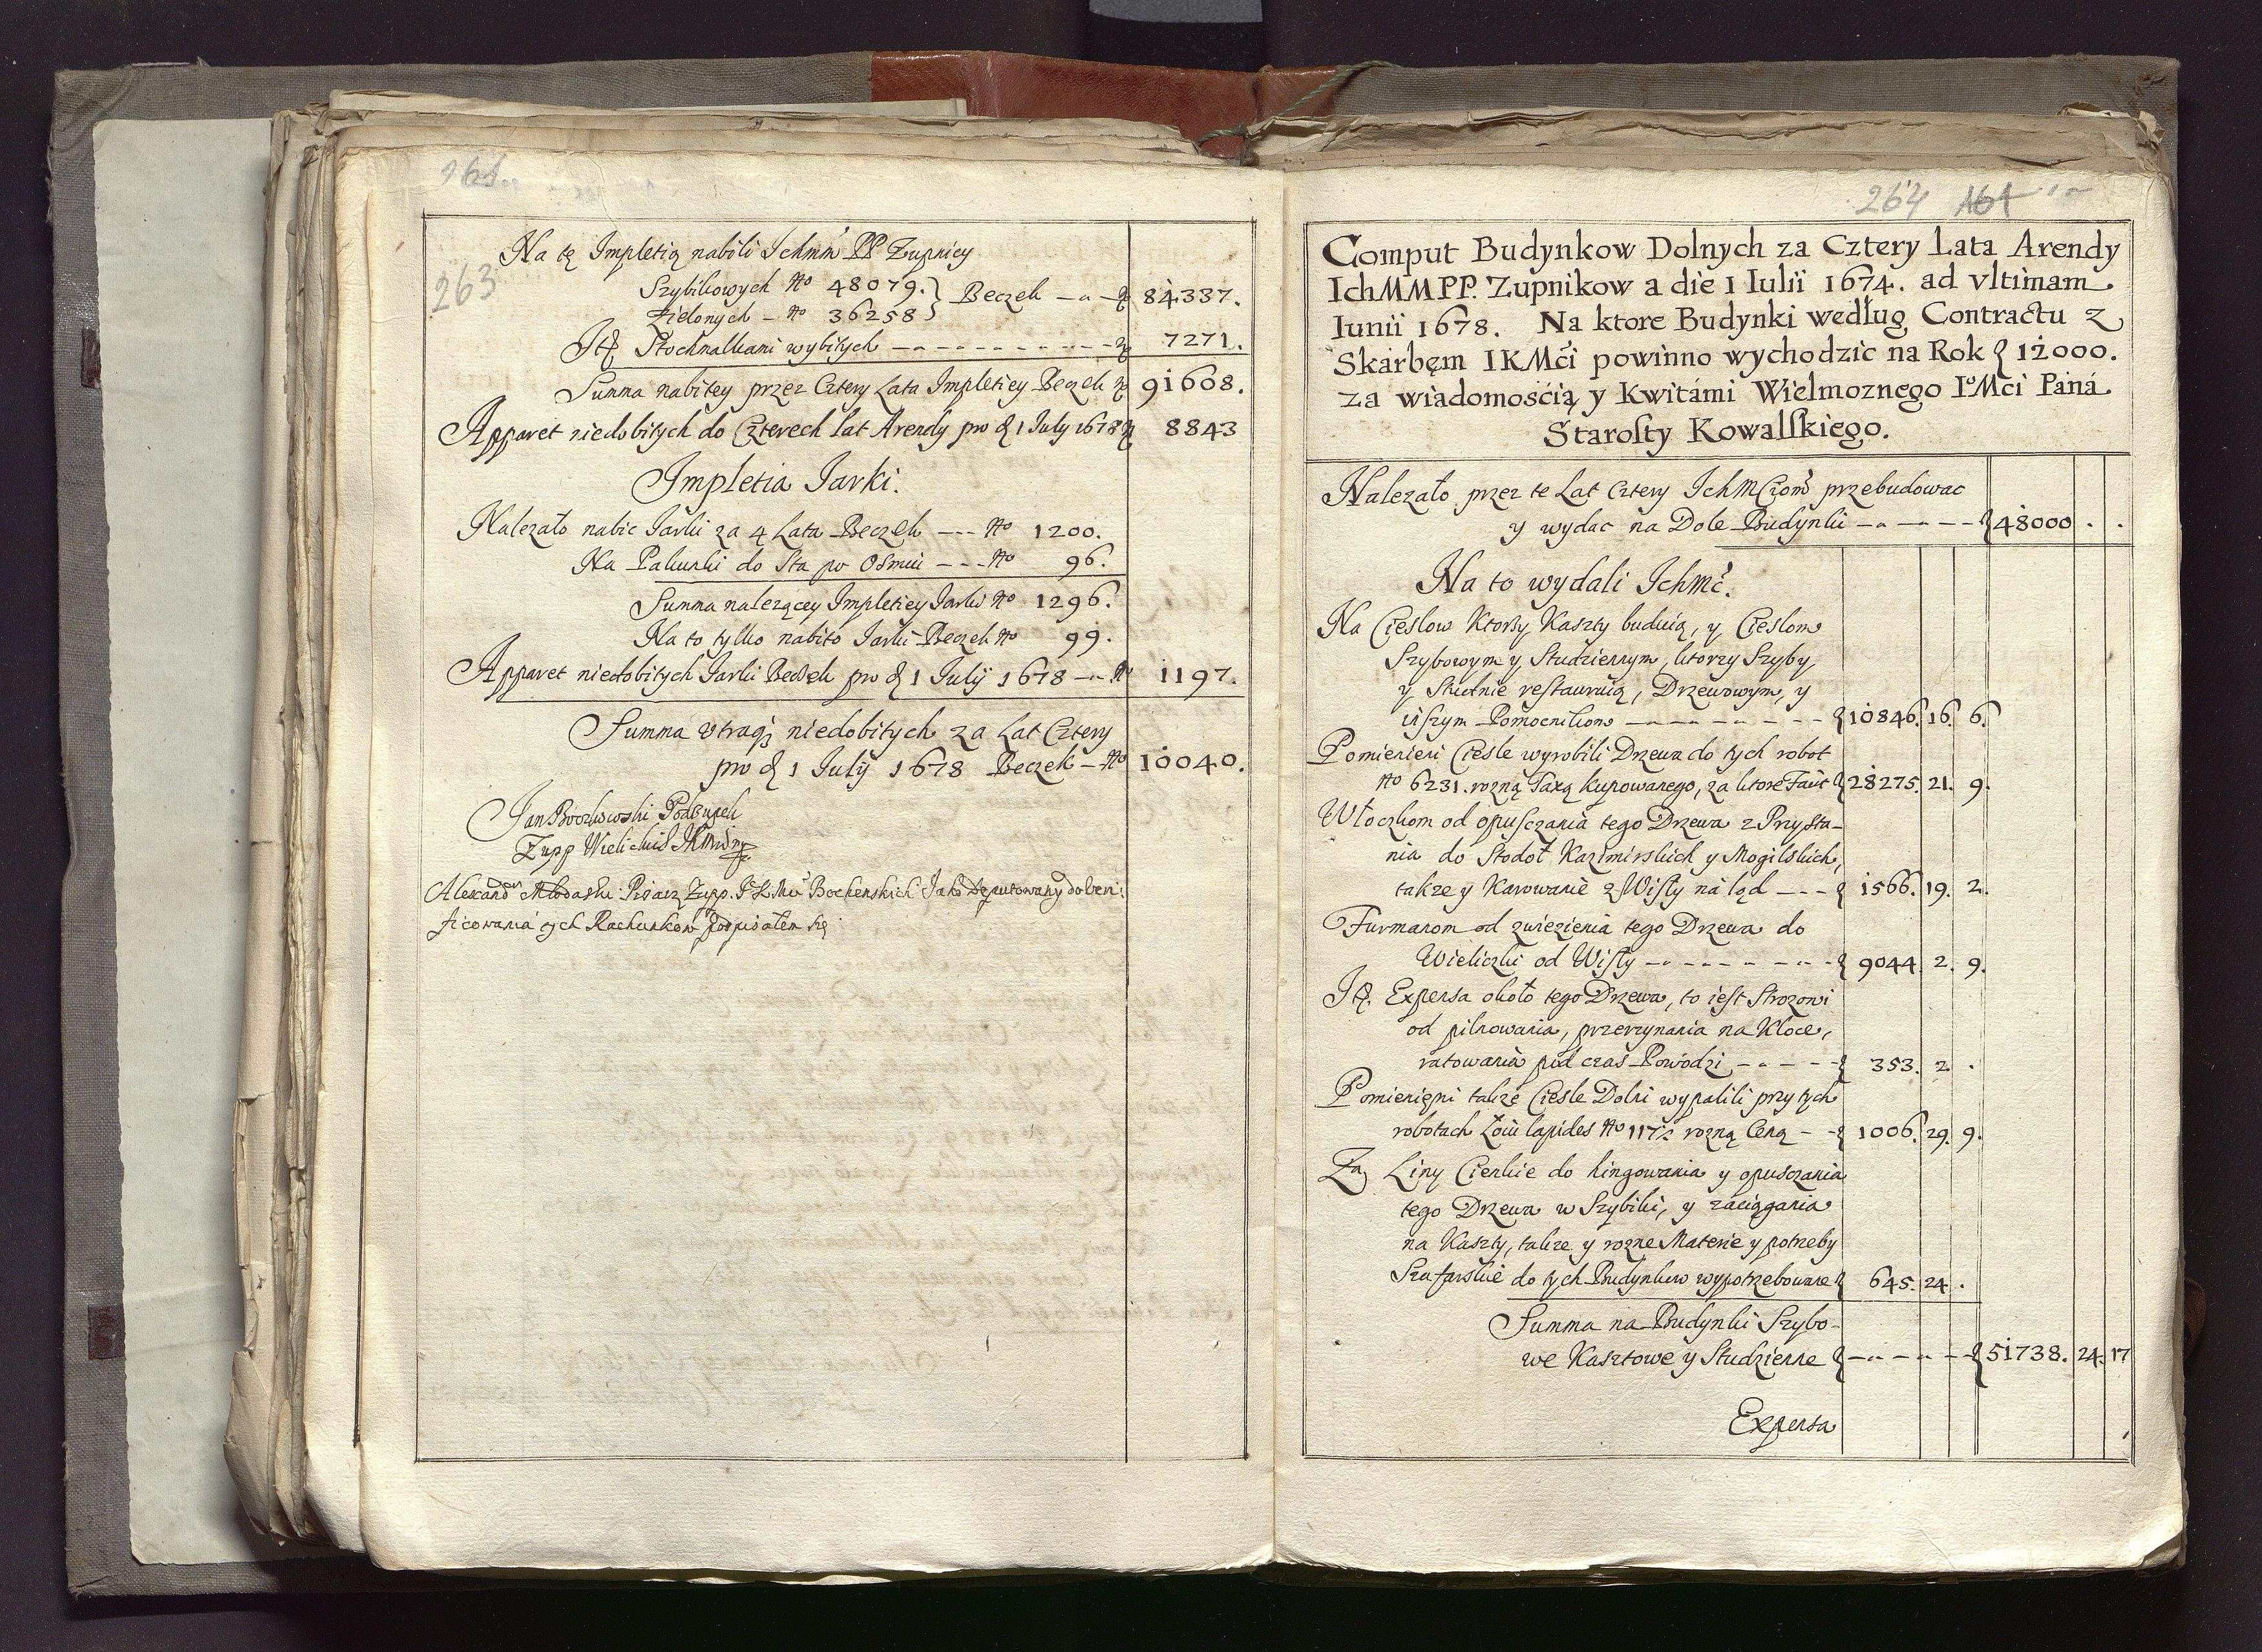 263
Na tę Impletią nabili Ichmm PP Zupnicy
Szybikowych No 48079. } Beczek 84337.
Zielonych – No 36258 }
It. Stochnalkami wybitych 7271.
Summa nabitey przez Cztery Lata Impletiey Beczek 91608.
Apparet niedobitych do Czterech lat Arendy pro d 1 July 1678 8843
Impletia Jarki.
Nalezało nabic Jarki za 4 Lata Beczek --- No 1200.
Na Pakunki do Sta po Osmiu --- No 96.
Summa nalezącey Impletiey Jarki No 1296.
Na to tylko nabito Jarki Beczek No 99.
Apparet niedobitych Jarki Beczek pro d 1 Julij 1678 -- No 1197.
Summa utraqz niedobitych za Lat Cztery
pro d 1 Julij 1678 Beczek – No 10040.
Jan Podzupek
Zupp
Alexander Pisarz Zupp. Bochenskich Jako Deputowany do veri:
ficowania tych Rachunkow podpisałem się
264 161
Comput Budynkow Dolnych za Cztery Lata Arendy
IchMM PP. Zupnikow a die 1 Iulii 1674. ad vltimam
Iunii 1678. Na ktore Budynki według Contractu z
Skarbem IKMći powinno wychodzic na Rok 12000.
za wiadomośćią y Kwitámi Wielmoznego IoMći Paná
Starosty Kowalskiego.
Nalezało przez te Lat Cztery IchMCiom przebudowac
y wydac na Dole Budynki 48000 . .
Na to wydali Ichmć.
Na Cieslow Ktorzy Kaszty buduią, y Cieslom
Szybowym y Studziennym, ktorzy Szyby,
y Studnie restauruią, Drzewowym, y
inszym Pomocnikom 10846. 16. 6.
Pomienieni Ciesle wyrobili Drzewa do tych robot
No 6231. rozną Taxą kupowanego, za ktore Facit 28275. 21. 9.
Włoczkom od opusczania tego Drzewa z Przysta-
nia do Stodoł Kazimirskich y Mogilskich,
takze y Karowanie z Wisły na ląd --- 1566. 19. 2.
Furmanom od zwiezienia tego Drzewa do
Wieliczki od Wisły 9044. 2. 9.
It. Expensa około tego Drzewa, to iest Strozowi
od pilnowania, przerzynania na Kloce,
ratowania pod czas Powodzi 353. 2 .
Pomienieni takze Ciesle Dolni wypalili przy tych
robotach Łoiu lapides No 117½ rozną Ceną 1006. 29. 9.
Za Liny Cienkie do hingowania y opusczania
tego Drzewa w Szybiki, y zaciągania
na Kaszty, takze y rozne Materie y potrzeby
Szafarskie do tych Budynkow wypotrzebowane 645. 24 .
Summa na Budynki Szybo-
we Kasztowe y Studzienne 51738. 24. 17
Expensa